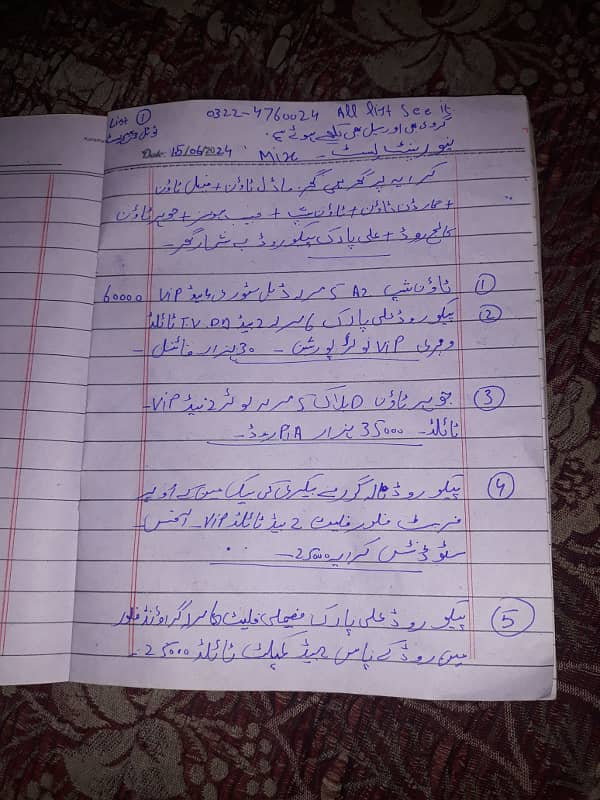 List ① 0322-4760024 All list See it
گروی بھی اور سیل بھی لکھے ہوئے ہے
Date: 15/06/2024 Mix نیو رینٹ لسٹ
کرایہ پر گھر ہی گھر۔ ماڈل ٹاؤن + فیصل ٹاؤن
+ گارڈن ٹاؤن + ٹاؤن شپ + + جوہر ٹاؤن
کالج روڈ + علی پارک پیکو روڈ بے شمار گھر۔
① ٹاؤن شپ A2 5 مرلہ ڈبل سٹوری 4 بیڈ ViP 60000
② پیکو روڈ علی پارک 6 مرلہ 2 بیڈ T.V. DD ٹائلڈ
ViP لوئر پورشن - 30 ہزار فائنل -
③ جوہر ٹاؤن D بلاک 5 مرلہ لوئر 2 بیڈ ViP-
ٹائلڈ - 35000 ہزار PiA روڈ -
④ پیکو روڈ گورمے بیکری کی بیک میں کے اوپر
فرسٹ فلور فلیٹ 2 بیڈ ٹائلڈ ViP - آفس -
سٹوڈنٹس کرایہ 25000 -
⑤ پیکو روڈ علی پارک فیملی فلیٹ 6 مرلہ گراؤنڈ فلور
مین روڈ کے پاس 2 بیڈ ٹائلڈ 25000 -